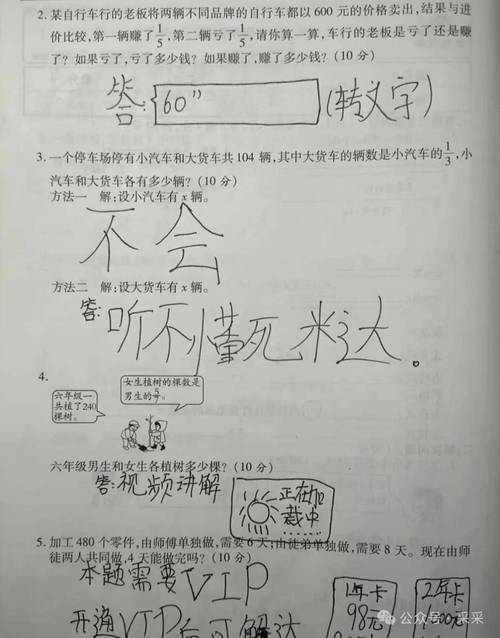 2. 某自行车行的老板将两辆不同品牌的自行车都以 600 元的价格卖出，结果与进
价比较，第一辆赚了1/5，第二辆亏了1/5，请你算一算，车行的老板是亏了还是赚
了？如果亏了，亏了多少钱？如果赚了，赚了多少钱？(10 分)
答: 60” (转文字)
3. 一个停车场停有小汽车和大货车共 104 辆，其中大货车的辆数是小汽车的1/3，小
汽车和大货车各有多少辆？(10 分)
方法一 解：设小汽车有 x 辆。
不会
方法二 解：设大货车有 x 辆。
答: 听不懂死米达。
4.
女生植树的棵数是
男生的
六年级一
共植了240
棵树。
六年级男生和女生各植树多少棵？(10 分)
答:视频讲解
正在加
载中
5. 加工 480 个零件，由师傅单独做，需要 6 天；由徒弟单独做，需要 8 天。现在由师
徒两人共同做，4 天能做完吗？(10 分)
本题需要VIP
开通VIP后可解达
1年卡
98元
2年卡
公众号·采采